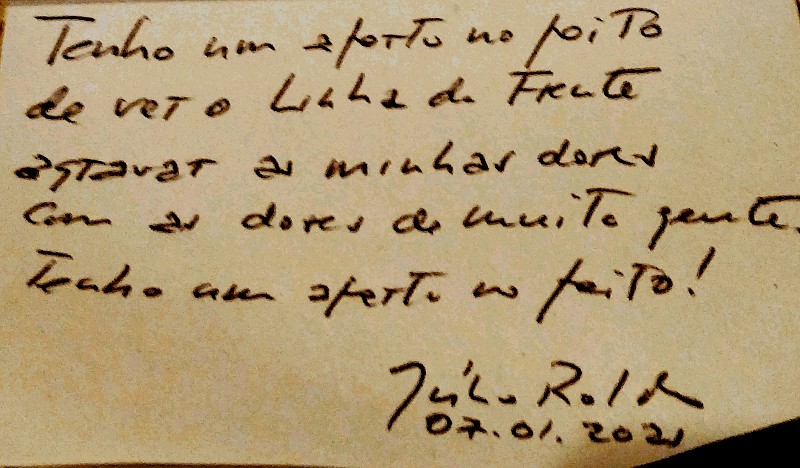 Tenho um aperto no peito
de ver o Linha de Frente
agravar as minhas dores
com as dores de muita gente.
Tenho um aperto no peito!
Júlio Roldão
07.01.2021